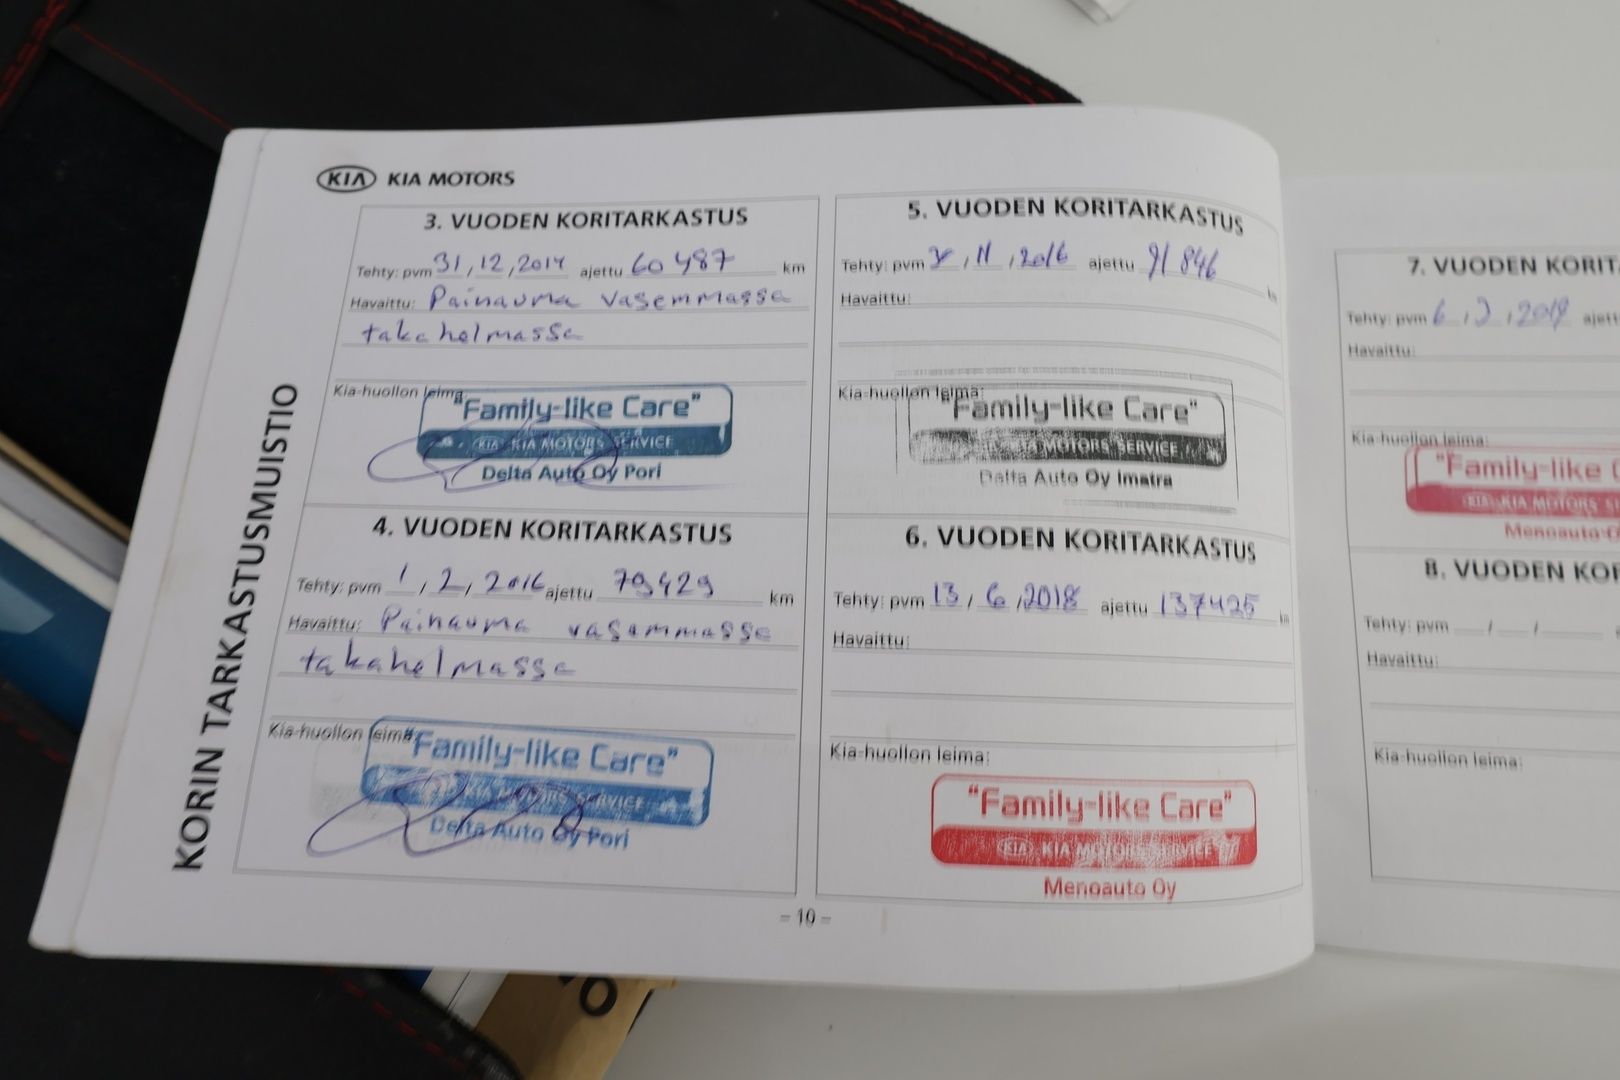 KIA KIA MOTORS
KORIN TARKASTUSMUISTIO
3. VUODEN KORITARKASTUS
Tehty: pvm 31, 12, 2014 ajettu 60 487 km
Havaittu: Painauma vasemmassa
takahelmassa
Kia-huollon leima:
"Family-like Care"
KIA KIA MOTORS SERVICE
Delta Auto Oy Pori
4. VUODEN KORITARKASTUS
Tehty: pvm 1, 2, 2016 ajettu 79429 km
Havaittu: Painauma vasemmassa
takahelmassa
Kia-huollon leima:
"Family-like Care"
KIA MOTORS SERVICE
Delta Auto Oy Pori
5. VUODEN KORITARKASTUS
Tehty: pvm / 11 / 2016 ajettu 91 846 km
Havaittu:
Kia-huollon leima:
"Family-like Care"
KIA MOTORS SERVICE
Delta Auto Oy Imatra
6. VUODEN KORITARKASTUS
Tehty: pvm 13 / 6 / 2018 ajettu 137425 km
Havaittu:
Kia-huollon leima:
"Family-like Care"
KIA KIA MOTORS SERVICE
Menoauto Oy
– 10 –
7. VUODEN KORIT
Tehty: pvm 6 / / ajett
Havaittu:
Kia-huollon leima:
"Family-like C
KIA KIA MOTORS SE
Menoauto O
8. VUODEN KOR
Tehty: pvm / /
Havaittu:
Kia-huollon leima: